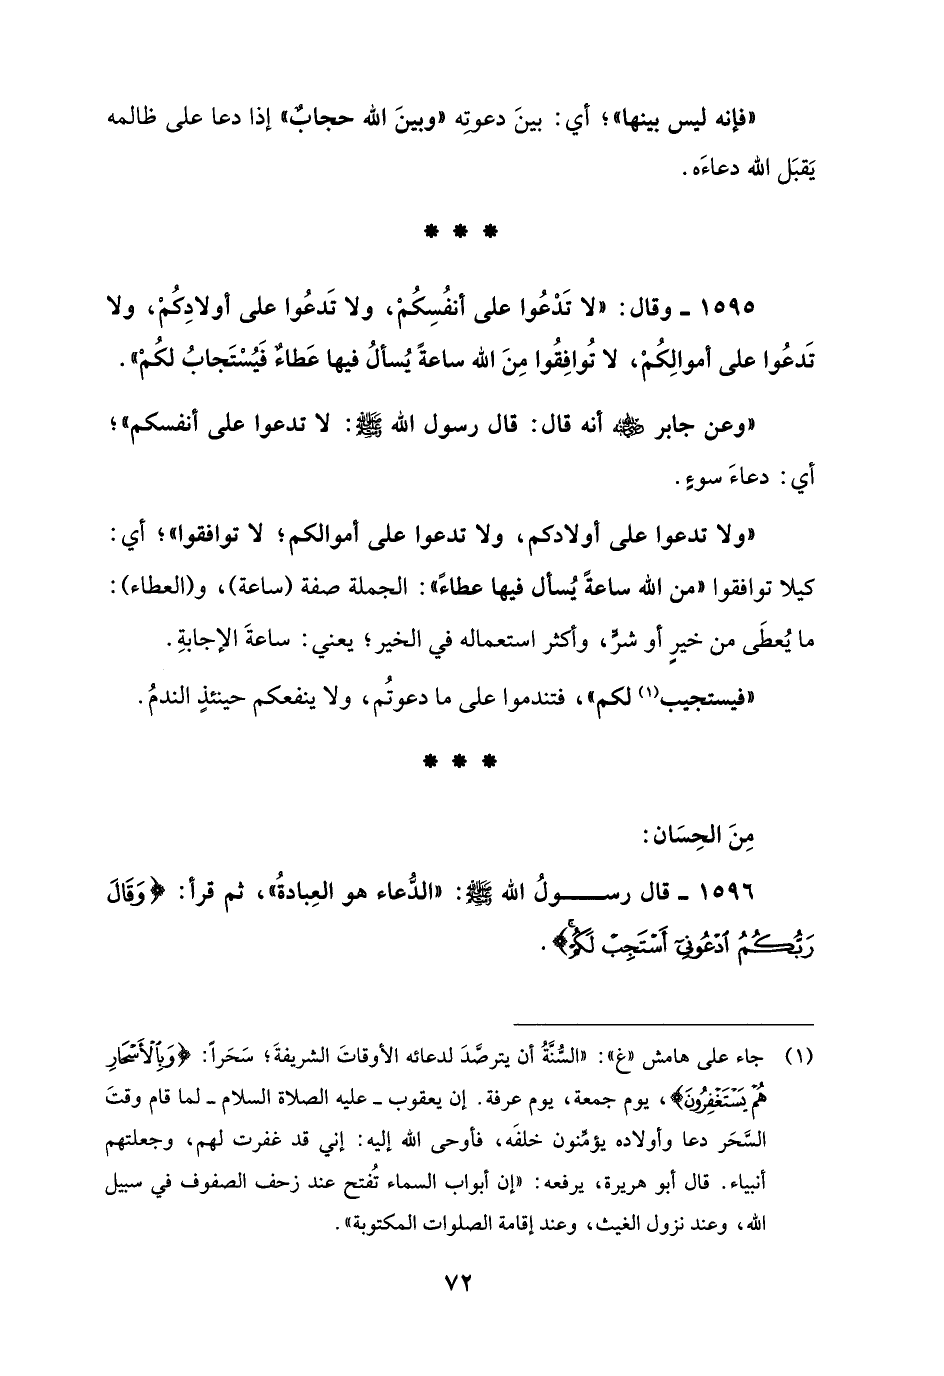 «فإنه ليس بينها»؛ أي: بينَ دعوتِه «وبينَ الله حجابٌ» إذا دعا على ظالمه
يَقبَل الله دعاءَه.
* * *
١٥٩٥ ـ وقال: «لا تَدْعُوا على أنفُسِكُمْ، ولا تَدعُوا على أولادِكُمْ، ولا
تَدعُوا على أموالِكُمْ، لا تُوافِقُوا مِنَ الله ساعةً يُسألُ فيها عَطاءٌ فَيُسْتَجابُ لكُمْ».
«وعن جابر ﷺ أنه قال: قال رسول الله ﷺ: لا تدعوا على أنفسكم»؛
أي: دعاءَ سوءٍ.
«ولا تدعوا على أولادكم، ولا تدعوا على أموالكم؛ لا توافقوا»؛ أي:
كيلا توافقوا «من الله ساعةً يُسأل فيها عطاءً»: الجملة صفة (ساعة)، و(العطاء):
ما يُعطَى من خيرٍ أو شرٍّ، وأكثر استعماله في الخير؛ يعني: ساعةَ الإجابةِ.
«فيستجيب(١) لكم»، فتندموا على ما دعوتُم، ولا ينفعكم حينئذٍ الندمُ.
* * *
مِنَ الحِسَان:
١٥٩٦ ـ قال رســـولُ الله ﷺ: «الدُّعاء هو العِبادةُ»، ثم قرأ: ﴿وَقَالَ
رَبُّكُمُ ٱدْعُونِيٓ أَسْتَجِبْ لَكُمْۚ﴾.
(١) جاء على هامش «غ»: «السُّنَّةُ أن يترصَّدَ لدعائه الأوقاتَ الشريفةَ؛ سَحَراً: ﴿وَبِٱلْأَسْحَارِ
هُمْ يَسْتَغْفِرُونَ﴾، يوم جمعة، يوم عرفة. إن يعقوب ـ عليه الصلاة السلام ـ لما قام وقتَ
السَّحَر دعا وأولاده يؤمِّنون خلفَه، فأوحى الله إليه: إني قد غفرت لهم، وجعلتهم
أنبياء. قال أبو هريرة، يرفعه: «إن أبواب السماء تُفتح عند زحف الصفوف في سبيل
الله، وعند نزول الغيث، وعند إقامة الصلوات المكتوبة».
٧٢